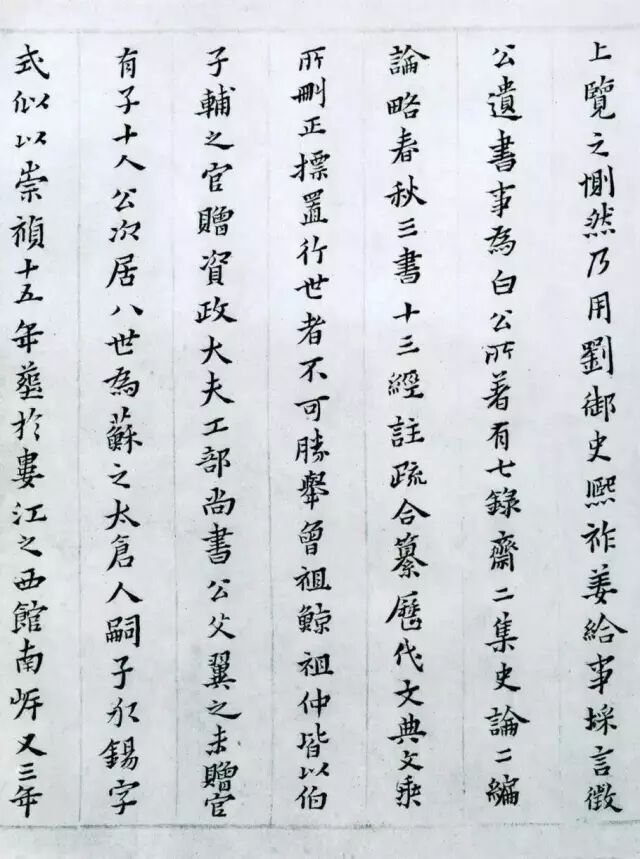 上覽之惻然乃用劉御史熙祚姜給事埰言徵
公遺書事為白公所著有七錄齋二集史論二編
論略春秋三書十三經註疏合纂歷代文典文乘
所刪正標置行世者不可勝舉曾祖鯨祖仲皆以伯
子輔之官贈資政大夫工部尚書公父翼之未贈官
有子十人公次居八世為蘇之太倉人嗣子永錫字
式似以崇禎十五年葬於婁江之西館南岸又三年